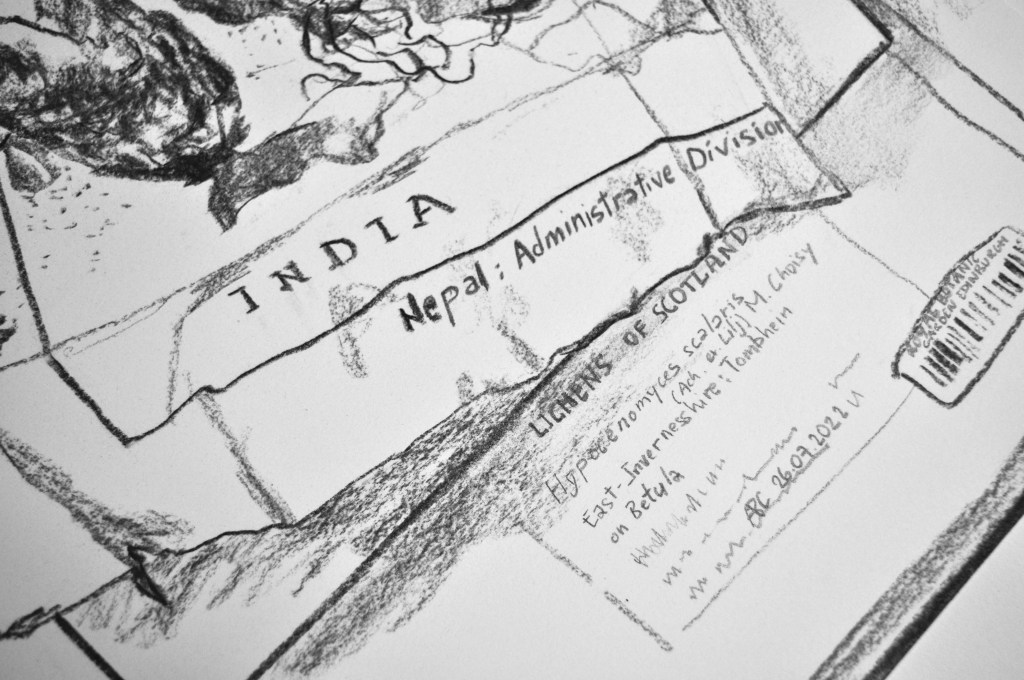 INDIA
Nepal: Administrative Division
LICHENS OF SCOTLAND
Hypocenomyces scalaris
(Ach. a Lilj) M. Choisy
East-Invernesshire: Tomblein
on Betula
26.07.2022
ROYAL BOTANIC
GARDEN EDINBURGH